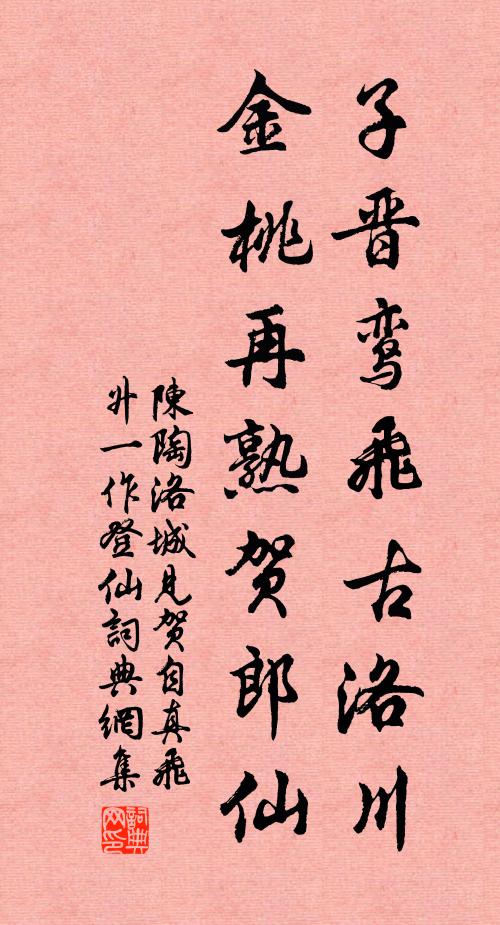 子晋鸾飛古洛川
金桃再熟贺郎仙
陳陶洛城見贺自真飛
升一作登仙詞典網集
詞典
网印